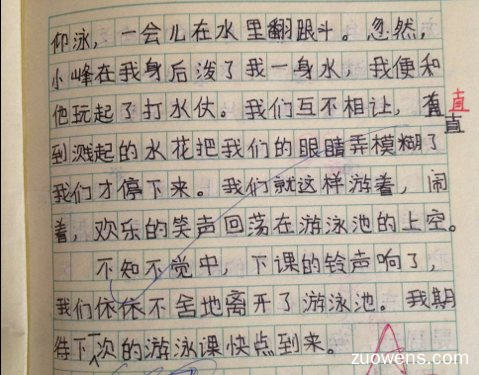 仰泳，一会儿在水里翻跟斗。忽然，
小峰在我身后泼了我一身水，我便和
他玩起了打水仗。我们互不相让，直
直
直
到溅起的水花把我们的眼睛弄模糊了
我们才停下来。我们就这样游着，闹
着，欢乐的笑声回荡在游泳池的上空。
不知不觉中，下课的铃声响了，
我们依依不舍地离开了游泳池。我期
待下次的游泳课快点到来。
zuowens.com